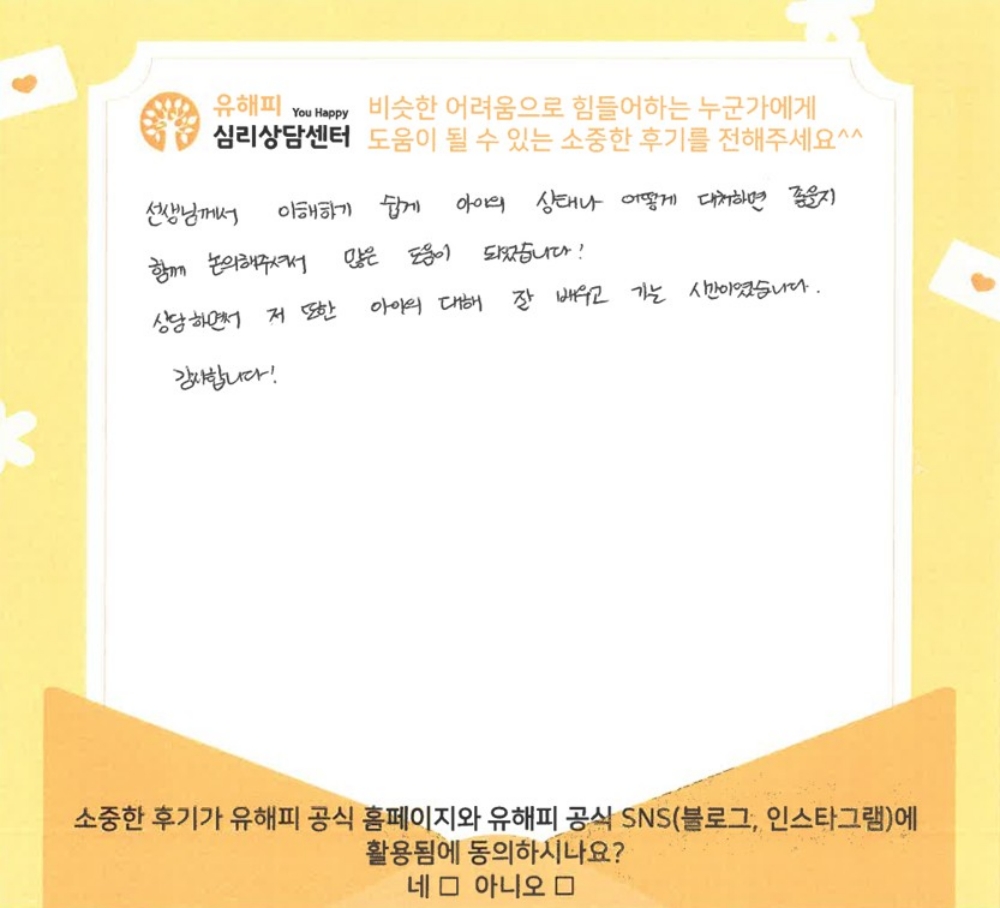 유해피 You Happy
심리상담센터
비슷한 어려움으로 힘들어하는 누군가에게
도움이 될 수 있는 소중한 후기를 전해주세요^^
선생님께서 이해하기 쉽게 아이의 상태나 어떻게 대처하면 좋을지
함께 논의해주셔서 많은 도움이 되었습니다!
상담하면서 저 또한 아이의 대해 잘 배우고 가는 시간이였습니다.
감사합니다!
소중한 후기가 유해피 공식 홈페이지와 유해피 공식 SNS(블로그, 인스타그램)에
활용됨에 동의하시나요?
네 □ 아니오 □